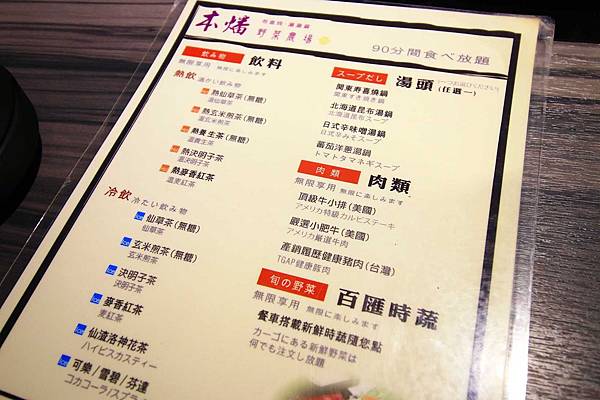 本燔 野菜農場
90分間食べ放題
飲み物 飲料
無限享用 無限に楽しみます
熱飲 温かい飲み物
熱仙草茶(無糖)
温仙草茶
熱玄米煎茶(無糖)
温玄米煎茶
熱養生茶(無糖)
温養生茶
熱決明子茶
温決明子茶
熱麥香紅茶
温麦紅茶
冷飲 冷たい飲み物
仙草茶(無糖)
仙草茶
玄米煎茶(無糖)
玄米煎茶
決明子茶
決明子茶
麥香紅茶
麦紅茶
仙渣洛神花茶
ハイビスカスティー
可樂/雪碧/芬達
コカコーラ/スプラ
スープだし 湯頭 (任選一)
関東寿喜燒鍋
関東すき焼き鍋
北海道昆布湯鍋
北海道昆布スープ
日式辛味噌湯鍋
日式辛みそスープ
番茄洋蔥湯鍋
トマトタマネギスープ
肉類 肉類
無限享用 無限に楽しみます
頂級牛小排(美國)
アメリカ特級カルビステーキ
嚴選小肥牛(美國)
アメリカ厳選牛肉
產銷履歷健康豬肉(台灣)
TGAP健康豚肉
旬の野菜 百匯時蔬
無限享用 無限に楽しみます
餐車搭載新鮮時蔬隨您點
カーゴにある新鮮野菜は
何でも注文し放題